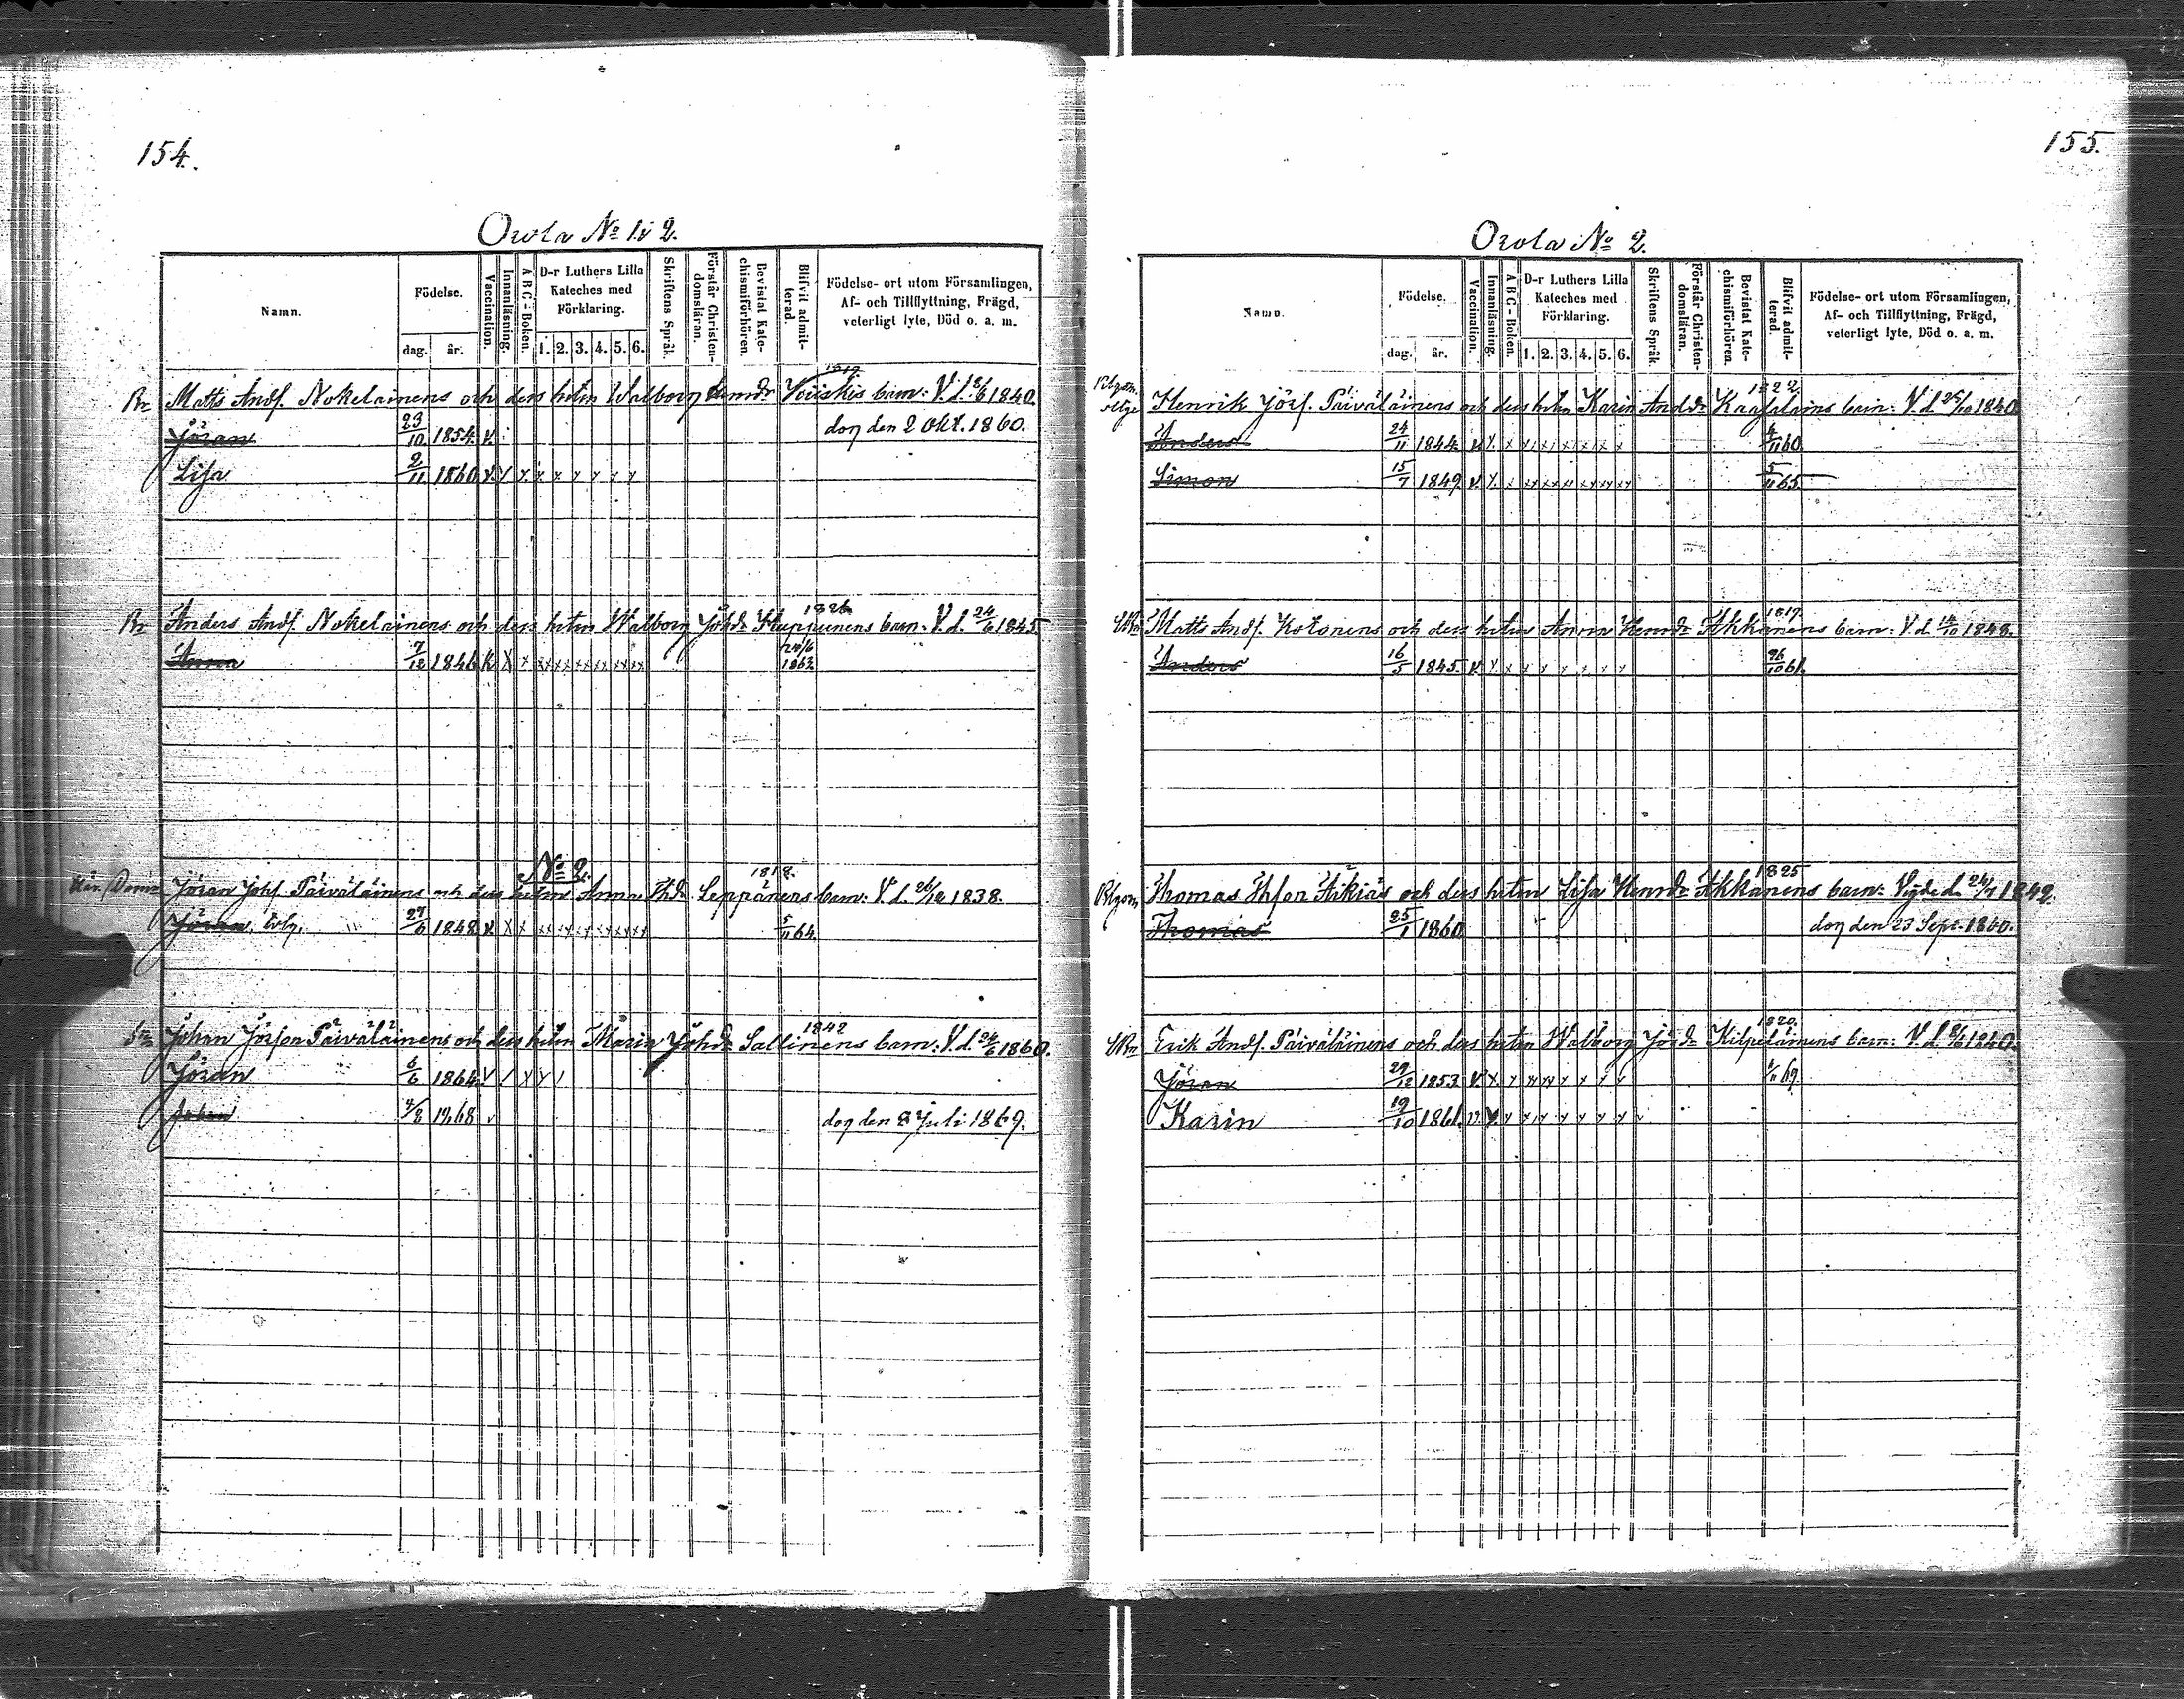 154.
Orola No 1. 2.
Namn.
Födelse.
dag.
år.
Vaccination.
Innanläsning.
A B C - Boken.
D-r Luthers Lilla Kateches med Förklaring.
1. 2. 3. 4. 5. 6.
Skriftens Språk.
Förstår Christendomsläran.
Bevistat Katechismiförhören.
Blifvit admitterad.
Födelse- ort utom Församlingen, Af- och Tillflyttning, Frägd, veterligt lyte, Död o. a. m.
Matts Andſ. Nokelainens och dess hstru Walborg Voiskis barn: V. d. 1840.
Jöran 23/10 1854 v. dog den 2 Okt. 1860.
Lisa 2/11 1860 x x x x x x x x x
1826
Anders Andſ. Nokelainens och dess hstru Walborg Johdr barn. V. d. 24/6 1845
Anna 7/12 1846
No 2.
1818.
Jöran Johſ. Päiväläinens och dess hstru Anna Thdr Seppänens barn: V. d. 26/12 1838.
Jöran 1848 5/11 64
1842
Johan Jörſon Päiväläinens och dess hstru Maria Johdr Sallinens barn: V. d. 24/6 1860.
Jöran 6/6 1864
Johan 4/8 1868 v dog den 8 Juli 1869.
155.
Orola No 2.
Namn.
Födelse.
dag.
år.
Vaccination.
Innanläsning.
A B C - Boken.
D-r Luthers Lilla Kateches med Förklaring.
1. 2. 3. 4. 5. 6.
Skriftens Språk
Förstår Christendomsläran.
Bevistat Katechismiförhören.
Blifvit admitterad.
Födelse- ort utom Församlingen, Af- och Tillflyttning, Frägd, veterligt lyte, Död o. a. m.
1822
Henrik Jörſ. Päiväläinens och dess hstru Karin Anddr barn: V. d. 1840
Anders 24/11 1844 4/11 60.
Simon 15/7 1849 5/11 65
1817.
Matts Andſ. Kotonens och dess hstru Anna Henrdr Akkanens barn: V. d. 1848.
Anders 16/5 1845 61.
1825
Thomas Thſon Äikiäs och dess hstru Lisa Henrdr Akkanens barn: Vigde d. 24/7 1842.
Thomas 25/1 1860 dog den 23 Sept. 1860.
1820.
Erik Andſ. Päiväläinens och dess hstru Walborg Jördr Kilpeläinens barn: V. d. 1840.
Jöran 29/12 1853 69.
Karin 19/10 1861.